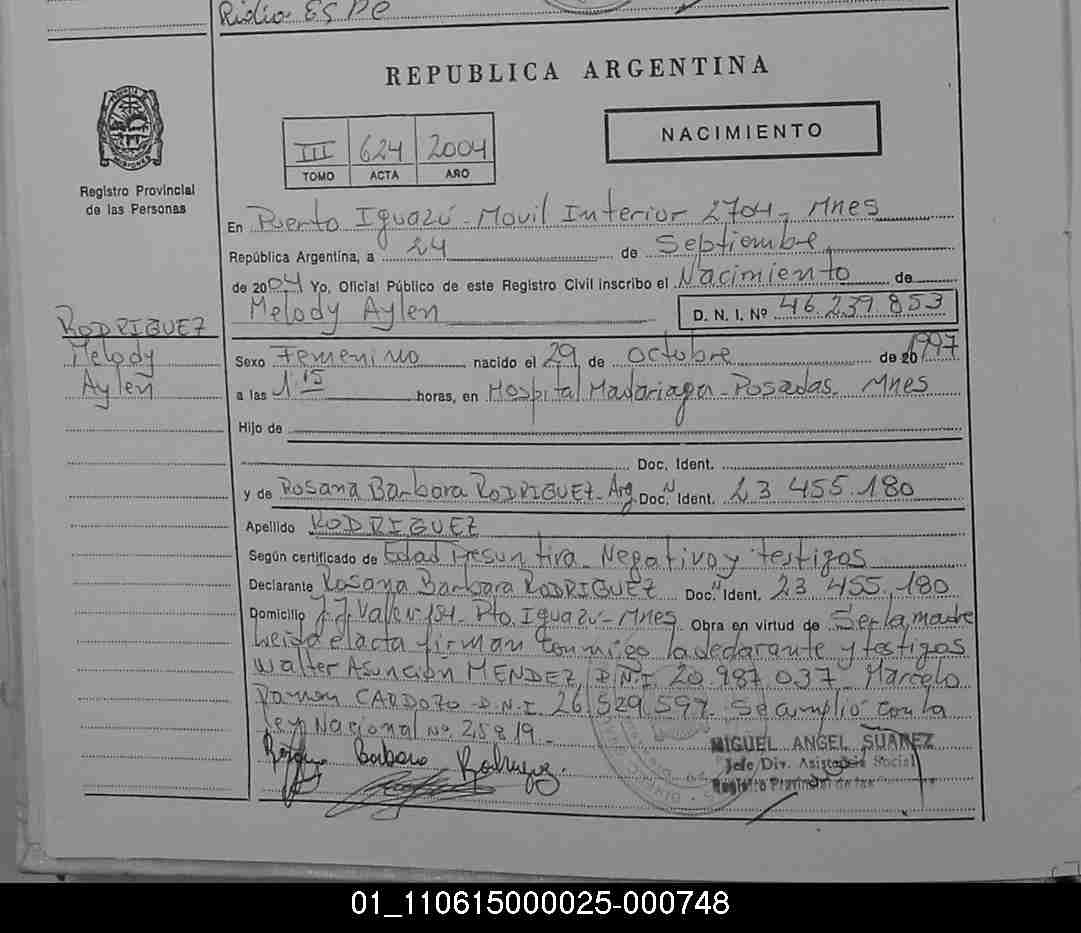 REPUBLICA ARGENTINA
III 624 2004
TOMO ACTA AÑO
NACIMIENTO
Registro Provincial
de las Personas
En Puerto Iguazú - Movil Interior 2704 - Mnes
República Argentina, a 24 de Septiembre
de 2004 Yo, Oficial Público de este Registro Civil inscribo el Nacimiento de
Melody Aylen D. N. I. Nº 46.239.853
RODRIGUEZ
Melody
Aylen
Sexo Femenino nacido el 29 de Octubre de 20 1997
a las 1 15 horas, en Hospital Madariaga - Posadas. Mnes
Hijo de
Doc. Ident.
y de Rosana Barbara RODRIGUEZ - Arg Doc. N Ident. 23 455.180
Apellido RODRIGUEZ
Según certificado de Edad Presuntiva - Negativo y testigos
Declarante Rosana Barbara RODRIGUEZ Doc. N Ident. 23 455.180
Domicilio Pto. Iguazú - Mnes Obra en virtud de Ser la madre
leida el acta firman conmigo la declarante y testigos
Walter Asunción MENDEZ, D.N.I 20.987.037 - Marcelo
Ramon CARDOZO - D.N.I. 26.529.597. Se cumplió con la
Ley Nacional Nº 25819 -
Barbara Rodriguez
MIGUEL ANGEL SUAREZ
Jefe Div. Asistencia Social
Registro Provincial de las
01_110615000025-000748